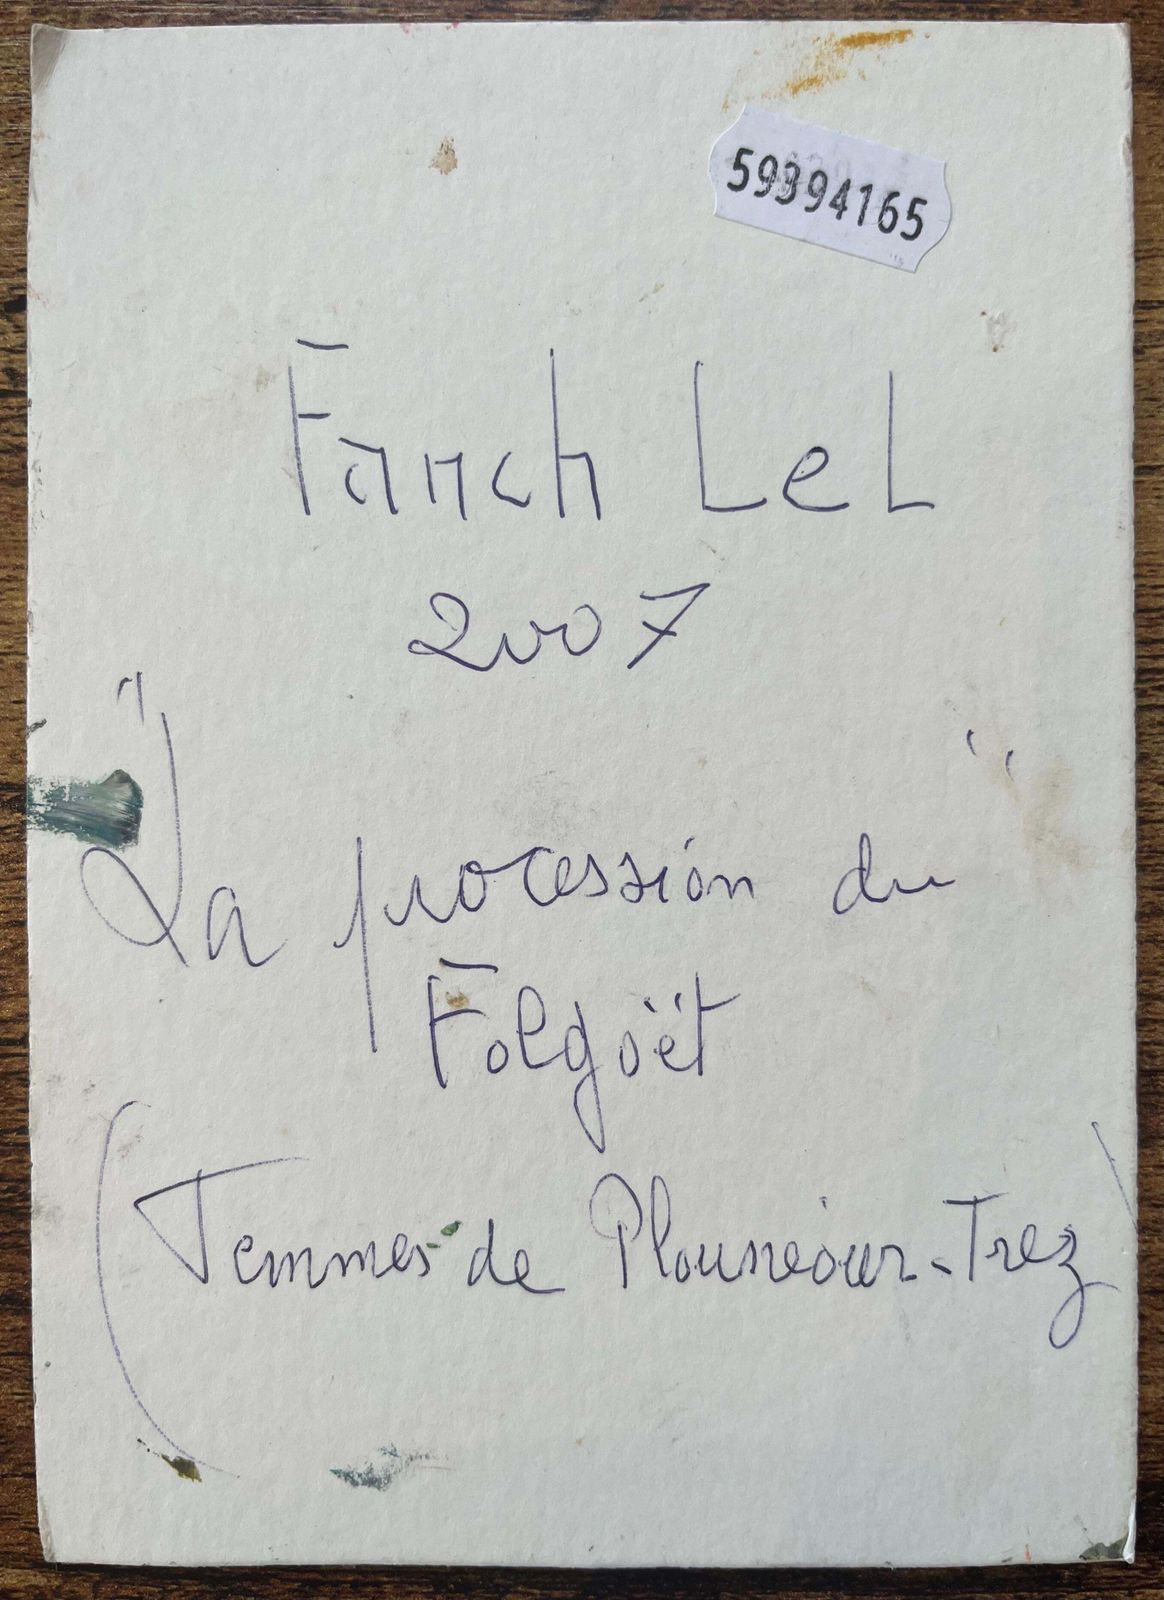 59394165
Fanch LeL
2007
"La procession du"
Folgoët
(Femmes de Plounéour-Trez)